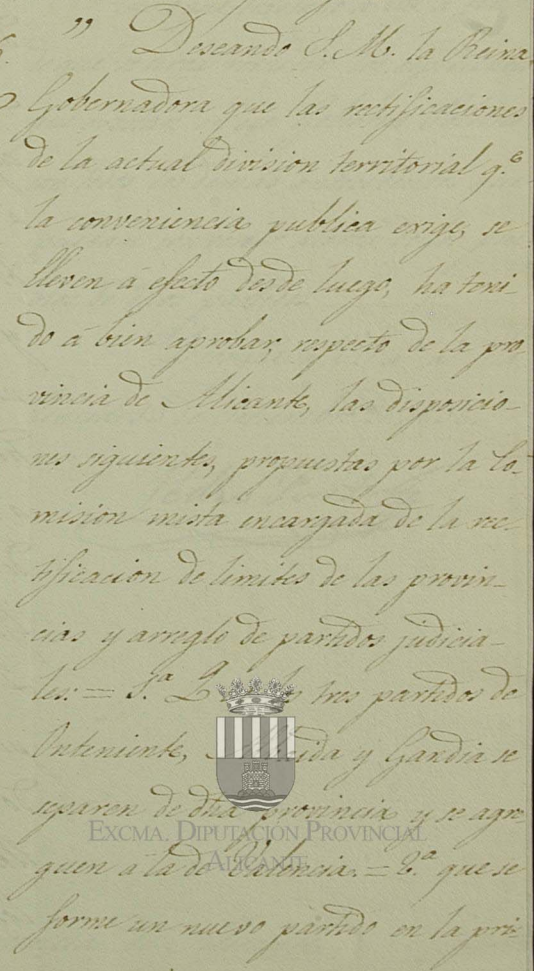 " Deseando S. M. la Reina
Gobernadora que las rectificaciones
de la actual division territorial q.e
la conveniencia publica exige, se
lleven á efecto desde luego, ha teni
do á bien aprobar, respecto de la pro
vincia de Alicante, las disposicio-
nes siguientes, propuestas por la Co-
mision mista encargada de la rec-
tificacion de limites de las provin-
cias y arreglo de partidos judicia-
les: = 1.a tres partidos de
Onteniente, y Gandia se
separen de dha provincia y se agre
guen á la de Valencia. = 2.a que se
forme un nuevo partido en la pri-
EXCMA. DIPUTACIÓN PROVINCIAL
ALICANTE